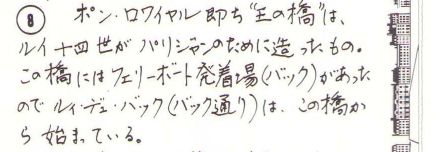 ⑧ ポン・ロワイヤル即ち"王の橋"は、
ルイ十四世がパリジャンのために造ったもの。
この橋にはフェリーボート発着場(バック)があった
のでルイ・デュ・バック(バック通り)は、この橋か
ら始まっている。